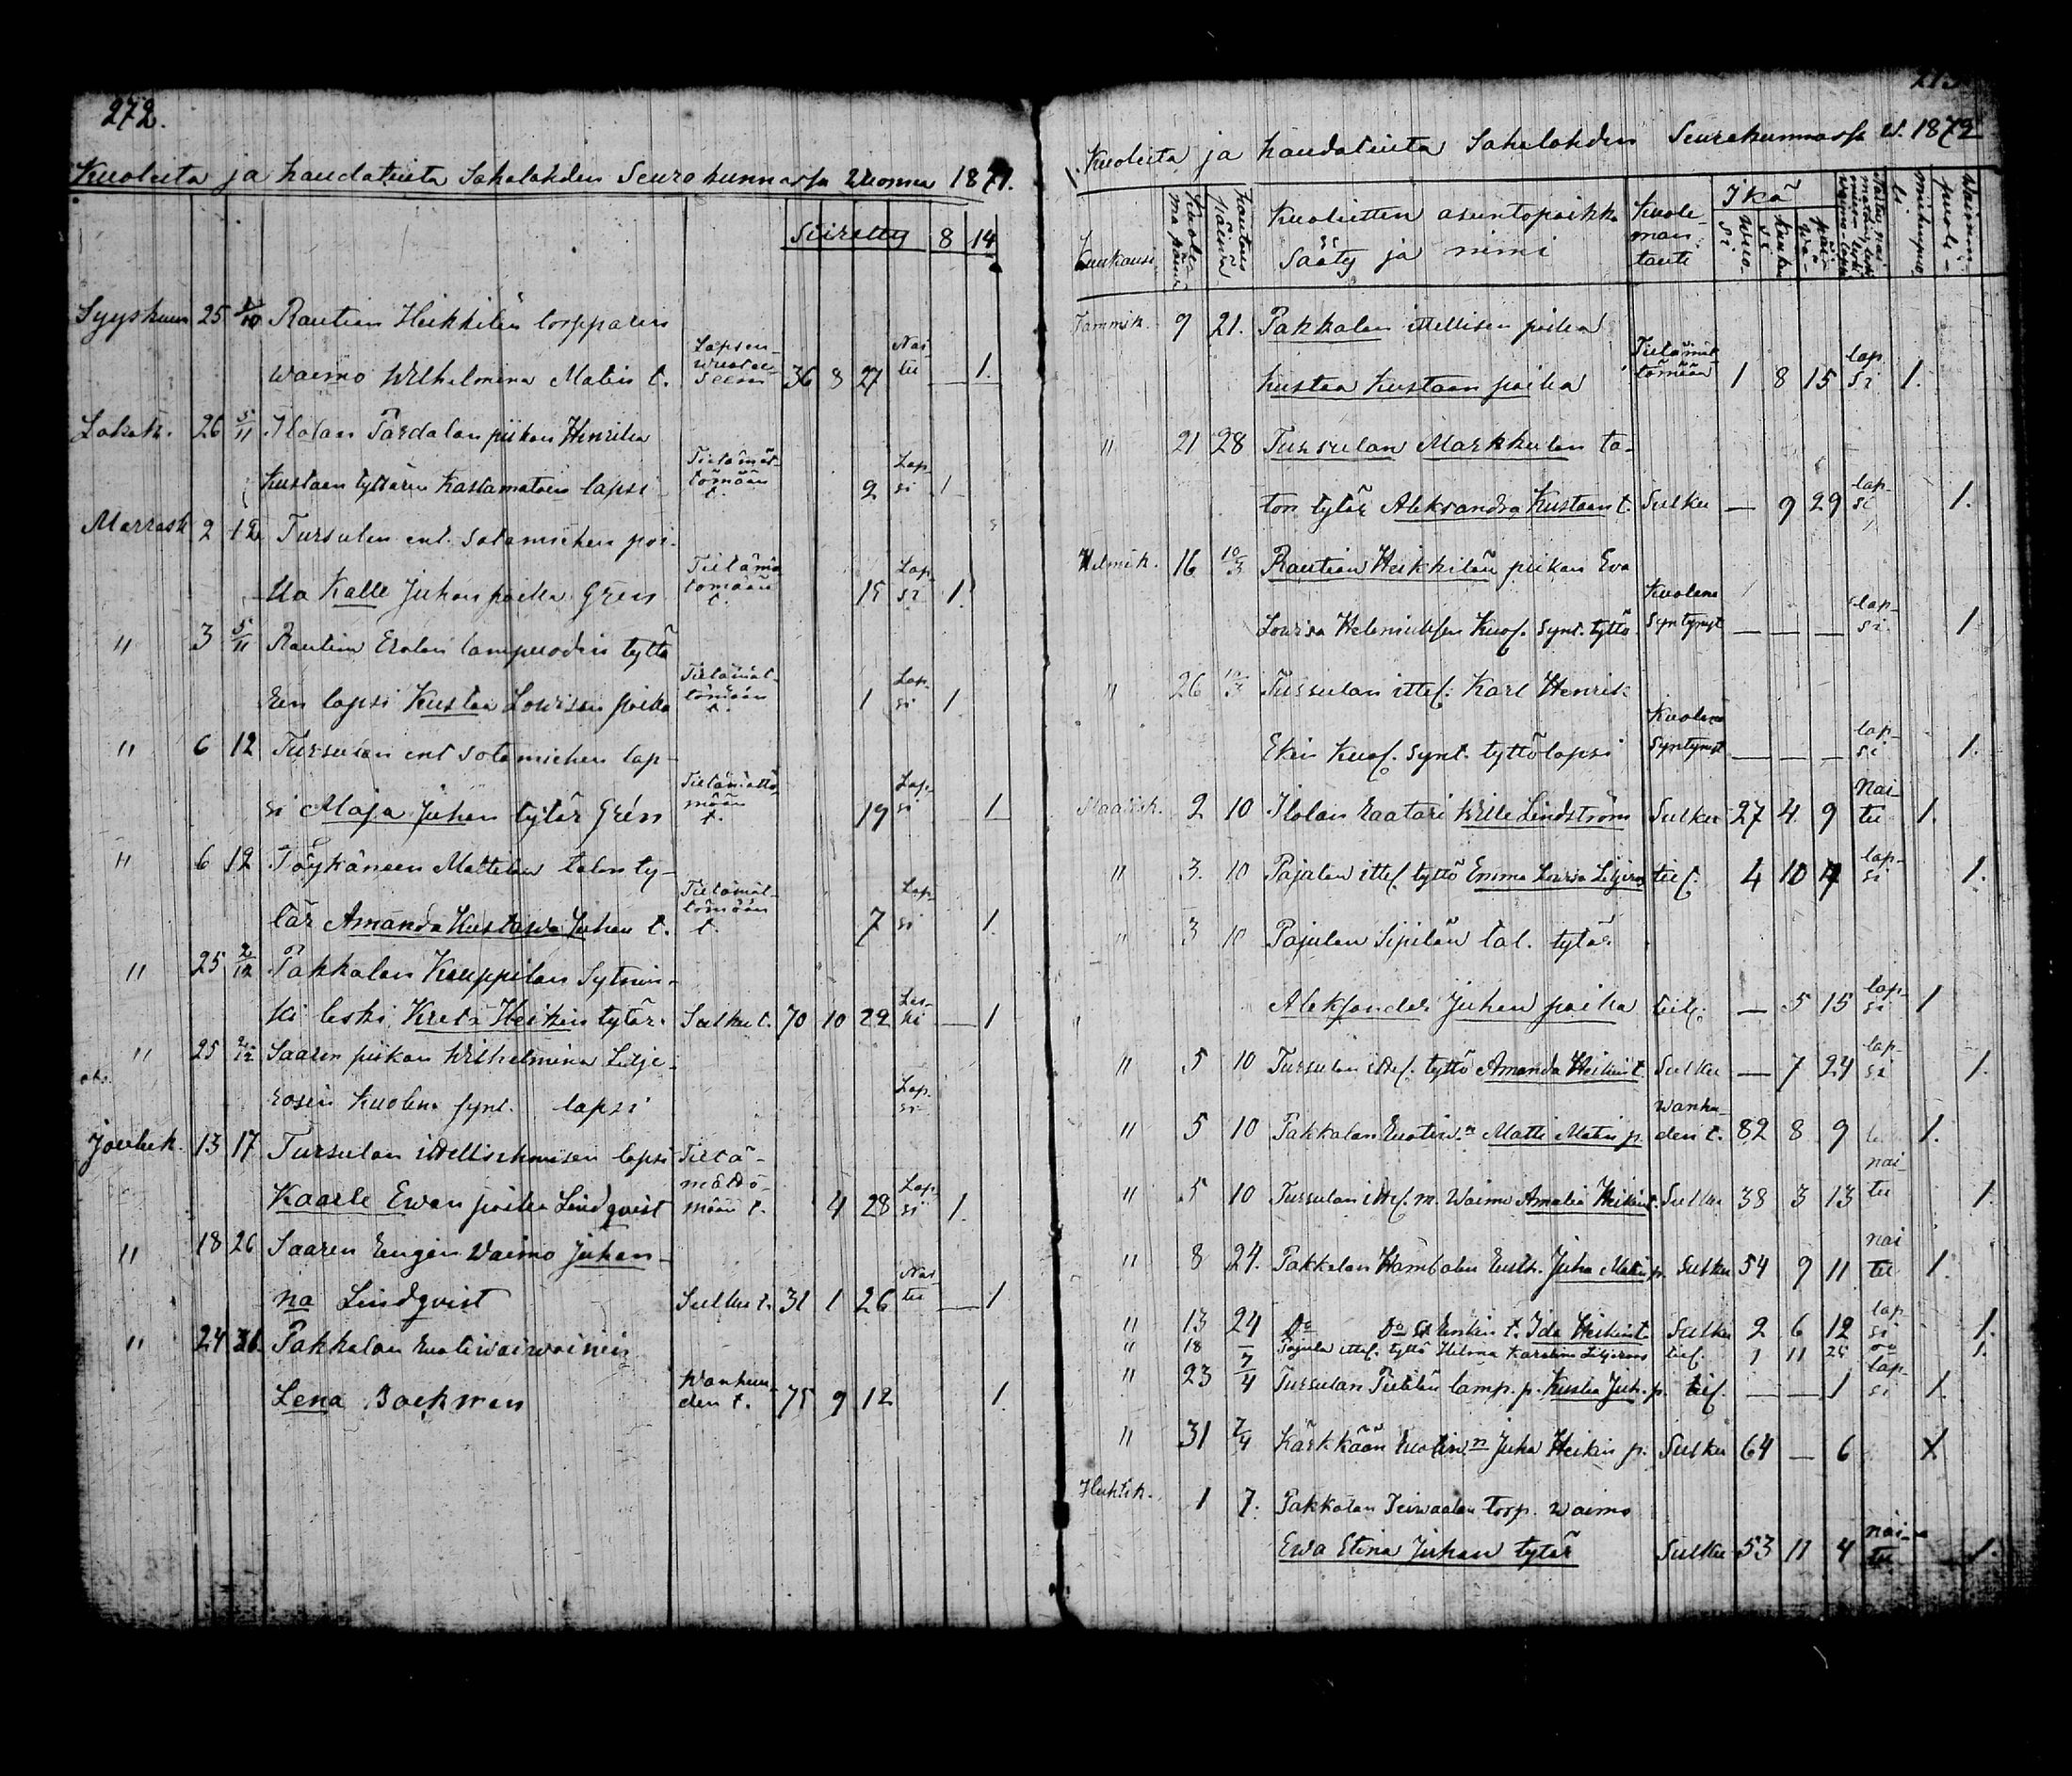 272.
Kuoleita ja haudatuita Sahalahden Seurakunnassa Vuonna 1871.
Siiretty 8 14
Syyskuun 25 1/10 Rautian Heikkilän torpparin
waimo Wilhelmina Matin t. Lapsen- 36 8 27 Nai- tu — 1.
Lokak. 26 5/11 Ilolan Pardalan piikan Henrika
Kustaan tyttären Kastamatoin lapsi Tietämät- tömään t. 2 Lap- si 1
Marrask 2 12 Tursulan ent. sotamiehen poi-
ka Kalle Juhan poika Gren Tietämä tömään t. 15 Lap- si 1.
" 3 5/11 Rautian Erolan lampuodin tyttä
ren lapsi Kustaa Lowisan poika Tietämät- tömään t. 1 Lap- si 1.
" 6 12 Tursulan ent sotamiehen lap-
si Maja Juhan tytär Grén Tietämättö- mään t. 19 Lap- si 1
" 6 12 Töykäneen Mattilan talon ty-
tär Amanda Kustawa Juhan t. Tietämät- tömään t. 7 Lap- si 1.
" 25 2/12 Pakkalan Kauppilan Sytnin-
ki leski Kreta Heikin tytär. Sulku t. 70 10 22 Les- ki — 1
" 25 2/12 Saaren piikan Wilhelmina Lilje-
rosin Kuolena synt. lapsi Lap- si
Jouluk. 13 17 Tursulan itellischmisen lapsi
Kaarle Ewan poika Lindqvist Tietä- mättö- mään t. 4 28 Lap- si 1.
" 18 26 Saaren Rengin Waimo Juhan-
na Lindqvist Sulku t. 31 1 26 Nai- tu — 1
" 24 31. Pakkalan Ruotiwaiwainen
Lena Backman Wanhuu- den t. 75 9 12 1.
Kuoleita ja haudatuita Sahalahden Seurakunnassa W. 1872
Kuukausi Kuole- ma päivä hautaus päivä Kuolleitten asuntopaikka Sääty ja nimi Kuole- man- tauti Ikä Wuo- si Kuuka si päi- wä miehenpuo. Waimon- puoli-
Tammik. 9 21. Pakkalan ittellisen poika
Kustaa Kustaan poika Tietämät- tömään 1 8 15 lap- si 1.
" 21 28 Tursulan Markkulan ta-
lon tytär Aleksandra Kustaan t. Sulku — 9 29 lap- si 1.
Helmik. 16 10/3 Rautian Heikkilän piikan Eva
Lowisa Kuol. synt. tyttö Kuolena Syntynyt — — — lap- si 1
" 26 10/3 Tursulan ittel. Karl Henrik
Ekin Kuol. synt. tyttölapsi Kuolena Syntynyt — — — lap- si 1.
Maalisk. 2 10 Ilolan Raatari Wille Lindström Sulku 27 4 9 Nai- tu 1.
" 3. 10 Pajulan ittel. tyttö Emma Lowisa Liljeros tiet. 4 10 lap- si 1.
" 3 10 Pajulan Sipilän tal. tytär
Aleksander Juhan poika tiet. — 5 15 lap- si 1
" 5 10 Tursulan ittel. tyttö Amanda Heikin t. Sulku — 7 24 lap- si 1.
" 5 10 Pakkalan Ruotiw.n Matti Matin p. Wanhu- den t. 82 8 9 1.
" 5 10 Tursulan ittel. m. Waimo Amalia Heikint. Sulku 38 3 13 nai- tu 1.
" 8 24. Pakkalan Hambalan Rusth. Juha Matin p. Sulku 54 9 11 nai tu 1.
" 13 24 Do Do Renkin t. Ida Heikint. Sulku 2 6 12 lap si 1.
" 18 Pajula ittel. tyttö Hilma Karolina Liljeros tiet. 1 11 25 1.
" 23 7/4 Tursulan Pietilän lamp. p. Kustaa Juh. p. tiet. — — 1 lap- si 1.
" 31 7/4 Kärkkään Ruotiw.n Juha Heikin p. Sulku 64 — 6 1
Huhtik. 1 7. Pakkalan Teiwaalan torp. Waimo
Ewa Stina Juhan tytär Sulku 53 11 4 nai- tu — 1.